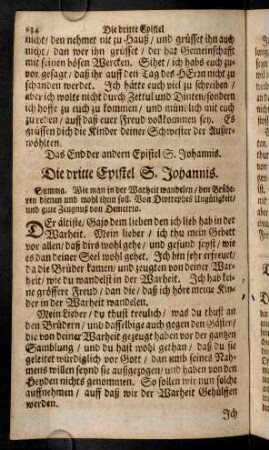 Die dritte Epistel
nicht/ den nehmet nit zu Hauß/ und grüsset ihn auch
nicht/ dan wer ihn grüsset/ der hat Gemeinschafft
mit seinen bösen Wercken. Sihet/ ich habs euch zu-
vor gesagt/ daß ihr auff den Tag des HErrn nicht zu
schanden werdet. Ich hätte euch viel zu schreiben/
aber ich wolte nicht durch Zettul und Dinten/ sondern
ich hoffe zu euch zu kommen/ und mündlich mit euch
zu reden/ auff daß euer Freud vollkommen sey. Es
grüssen dich die Kinder deiner Schwester der Außer-
wöhlten.
Das End der andern Epistel S. Johannis.
Die dritte Epistel S. Johannis.
Summa. Wie man in der Warheit wandelen/ den Brüde-
ren dienen und wohl thun soll. Von Diotrephes Ungütigkeit/
und gute Zeugnuß von Demetrio.
Der ältiste/ Gajo dem lieben den ich lieb hab in der
Warheit. Mein lieber/ ich thu mein Gebett
vor allen/ daß dirs wohl gehe/ und gesund seyst/ wie
es dan deiner Seel wohl gehet. Ich bin sehr erfreuet/
da die Brüder kamen/ und zeugten von deiner War-
heit/ wie du wandelst in der Warheit. Ich hab kei-
ne grössere Freud/ dan die/ daß ich höre meine Kin-
der in der Warheit wandelen.
Mein Lieber/ du thust treulich/ was du thust an
den Brüdern/ und dasselbige auch gegen den Gästen/
die von deiner Warheit gezeugt haben vor der gantzen
Samblung/ und du hast wohl gethan/ daß du sie
geleitet würdiglich vor Gott/ dan umb seines Nah-
mens willen seynd sie außgezogen/ und haben von den
Heyden nichts genommen. So sollen wir nun solche
auffnehmen/ auff daß wir der Warheit Gehülffen
werden.
Ich